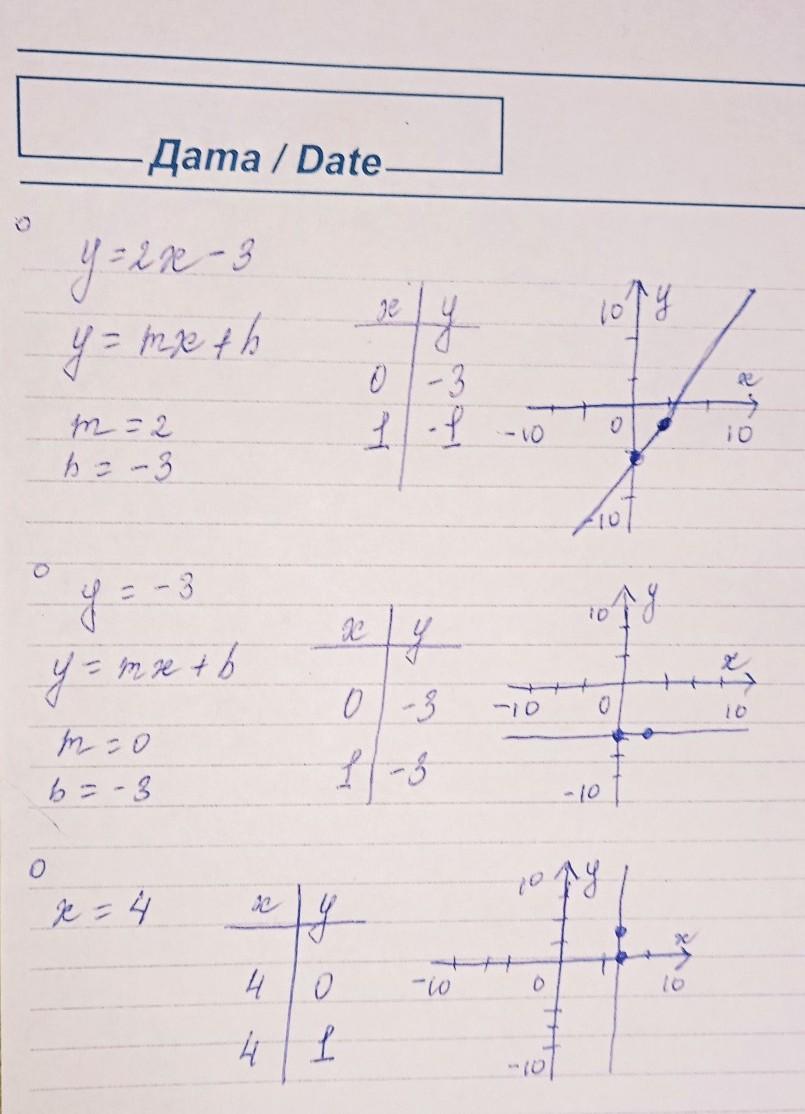 Дата / Date
y = 2x - 3
y = mx + b
m = 2
b = -3
x | y
0 | -3
1 | -1
10 y
x
-10 0 10
-10
y = -3
y = mx + b
m = 0
b = -3
x | y
0 | -3
1 | -3
10 y
x
-10 0 10
-10
x = 4
x | y
4 | 0
4 | 1
10 y
x
-10 0 10
-10